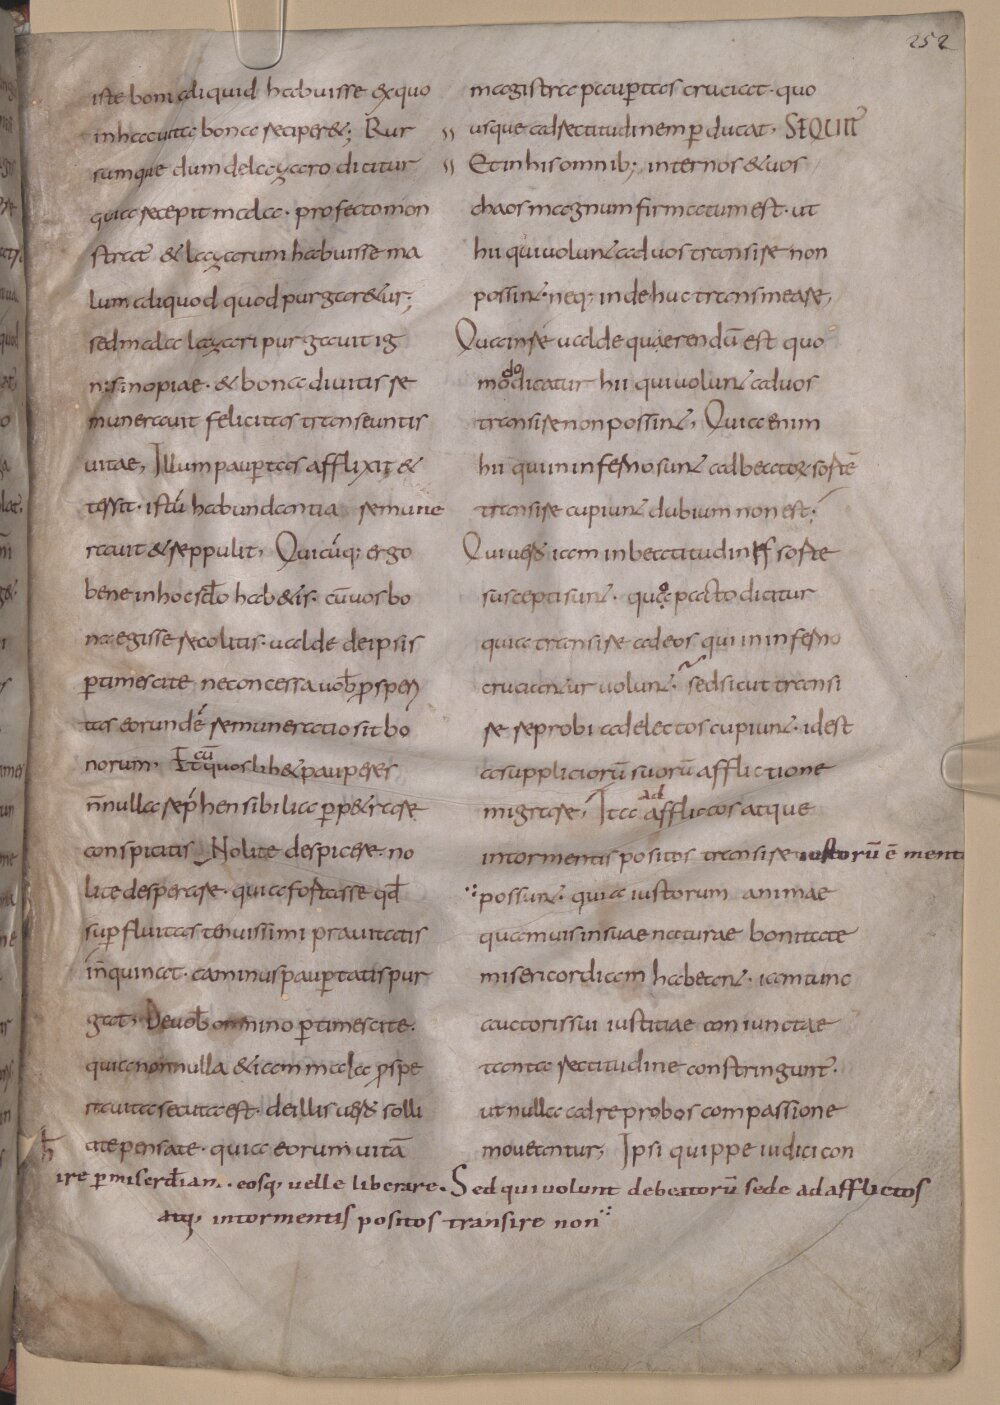 252
iste boni aliquid habuisse & quo
inhac uita bona reciper&; Rur
sumque dum de lazaro dicitur
quia recepit mala · profecto mon
strat̄ & lazarum habuisse ma
lum aliquod quod purgar&ur;
sed mala lazari purgauit ig
nis inopiae · & bona diuitis re
munerauit felicitas transeuntis
uitae, Illum paup̱tas afflixit &
tersit · istū habundantia remune
rauit & reppulit, Quicūq; ergo
bene inhoc sc̄lo hab&is · cū uos bo
na egisse recolitis · ualde de ipsis
p̱timescite ne concessa uob̄ p̱speri
tas eorundē remuneratio sit bo
norum, Et cū quoslib& pauperes
n̄nulla rep̄hensibilia p̱p&rare
conspicitis Nolite despicere · no
lite desperare · quia fortasse qd̄
sup̱fluitas tenuissimi prauitatis
inquinat · caminus paup̱tatis pur
gat, De uob̄ omnino p̱timescite ·
quia nonnulla &iam mala p̱spe
rauita secuta est · de illis uero solli
cite pensate · quia eorum uitā
magistra paup̱tas cruciat · quo
usque ad rectitudinem p̱ducat, SEQUIT̄
Et in his omnib; inter nos & uos
chaos magnum firmatum est · ut
hii qui uolunt ad uos transire non
possint · neq; inde huc transmeare,
Qua in re ualde quaerendū est quo
modo dicatur hii qui uolunt ad uos
transire non possint, Quia enim
hii qui in inferno sunt ad beator̄ sortē
transire cupiunt dubium non est;
Qui uero iam in beatitudinis sorte
suscepti sunt · quo pacto dicitur
quia transire ad eos qui in inferno
cruciantur uolunt · sed sicut transi
re reprobi ad electos cupiunt · id est
a suppliciorū suorū afflictione
migrare, Ita ad afflictos atque
in tormentis positos transire iustorū ē menti
possunt · quia iustorum animae
quamuis in suae naturae bonitate
misericordiam habeant · iam tunc
auctoris sui iustitiae coniunctae
tanta rectitudine constringunt̄ ·
ut nulla ad reprobos compassione
moueantur; Ipsi quippe iudici con
h̄ ire p̱ miserd̄iam · eosq; uelle liberare · Sed qui uolunt de beatorū sede ad afflictos
atq; in tormentis positos transire non